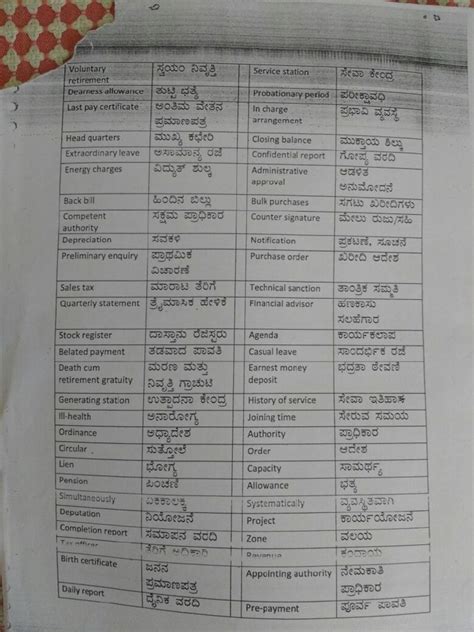 Voluntary retirement ಸ್ವಯಂ ನಿವೃತ್ತಿ Service station ಸೇವಾ ಕೇಂದ್ರ
Dearness allowance ತುಟ್ಟಿ ಭತ್ಯೆ Probationary period ಪರೀಕ್ಷಾವಧಿ
Last pay certificate ಅಂತಿಮ ವೇತನ ಪ್ರಮಾಣಪತ್ರ In charge arrangement ಪ್ರಭಾವಿ ವ್ಯವಸ್ಥೆ
Head quarters ಮುಖ್ಯ ಕಛೇರಿ Closing balance ಮುಕ್ತಾಯ ಶಿಲ್ಕು
Extraordinary leave ಅಸಾಮಾನ್ಯ ರಜೆ Confidential report ಗೋಪ್ಯ ವರದಿ
Energy charges ವಿದ್ಯುತ್ ಶುಲ್ಕ Administrative approval ಆಡಳಿತ ಅನುಮೋದನೆ
Back bill ಹಿಂದಿನ ಬಿಲ್ಲು Bulk purchases ಸಗಟು ಖರೀದಿಗಳು
Competent authority ಸಕ್ಷಮ ಪ್ರಾಧಿಕಾರ Counter signature ಮೇಲು ರುಜು/ಸಹಿ
Depreciation ಸವಕಳಿ Notification ಪ್ರಕಟಣೆ, ಸೂಚನೆ
Preliminary enquiry ಪ್ರಾಥಮಿಕ ವಿಚಾರಣೆ Purchase order ಖರೀದಿ ಆದೇಶ
Sales tax ಮಾರಾಟ ತೆರಿಗೆ Technical sanction ತಾಂತ್ರಿಕ ಸಮ್ಮತಿ
Quarterly statement ತ್ರೈಮಾಸಿಕ ಹೇಳಿಕೆ Financial advisor ಹಣಕಾಸು ಸಲಹೆಗಾರ
Stock register ದಾಸ್ತಾನು ರೆಜಿಸ್ಟರು Agenda ಕಾರ್ಯಕಲಾಪ
Belated payment ತಡವಾದ ಪಾವತಿ Casual leave ಸಾಂದರ್ಭಿಕ ರಜೆ
Death cum retirement gratuity ಮರಣ ಮತ್ತು ನಿವೃತ್ತಿ ಗ್ರಾಚುಟಿ Earnest money deposit ಭದ್ರತಾ ಠೇವಣಿ
Generating station ಉತ್ಪಾದನಾ ಕೇಂದ್ರ History of service ಸೇವಾ ಇತಿಹಾಸ
Ill-health ಅನಾರೋಗ್ಯ Joining time ಸೇರುವ ಸಮಯ
Ordinance ಅಧ್ಯಾದೇಶ Authority ಪ್ರಾಧಿಕಾರ
Circular ಸುತ್ತೋಲೆ Order ಆದೇಶ
Lien ಭೋಗ್ಯ Capacity ಸಾಮರ್ಥ್ಯ
Pension ಪಿಂಚಣಿ Allowance ಭತ್ಯ
Simultaneously ಏಕಕಾಲಕ್ಕೆ Systematically ವ್ಯವಸ್ಥಿತವಾಗಿ
Deputation ನಿಯೋಜನೆ Project ಕಾರ್ಯಯೋಜನೆ
Completion report ಸಮಾಪನ ವರದಿ Zone ವಲಯ
Tax officer ತೆರಿಗೆ ಅಧಿಕಾರಿ Revenue ಕಂದಾಯ
Birth certificate ಜನನ ಪ್ರಮಾಣಪತ್ರ Appointing authority ನೇಮಕಾತಿ ಪ್ರಾಧಿಕಾರ
Daily report ದೈನಿಕ ವರದಿ Pre-payment ಪೂರ್ವ ಪಾವತಿ